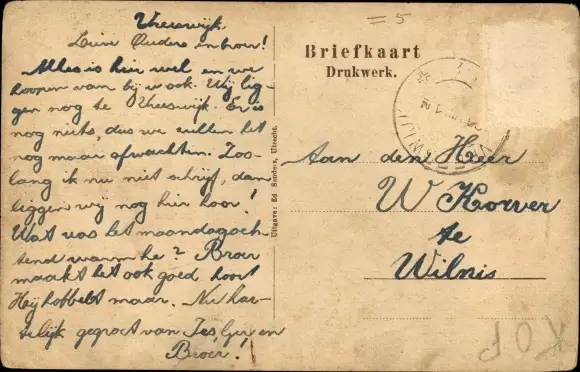 Vreeswijk.
Lieve Ouders en broer!
Alles is hier wel en we
hoopen van bij u ook. Wij lig-
gen nog te Vreeswijk. Er is
nog niets, dus we zullen het
nog maar afwachten. Zoo-
lang ik nu niet schrijf, dan
liggen wij nog hier hoor!
Wat was het maandagoch-
tend warm he? Broer
maakt het ook goed hoor
Hij hobbelt maar. Nu har-
telijk gegroet van
Broer!
Uitgave: Ed Sanders, Utrecht.
= 5
Briefkaart
Drukwerk.
Aan den Heer
W Korver
te
Wilnis
KOP